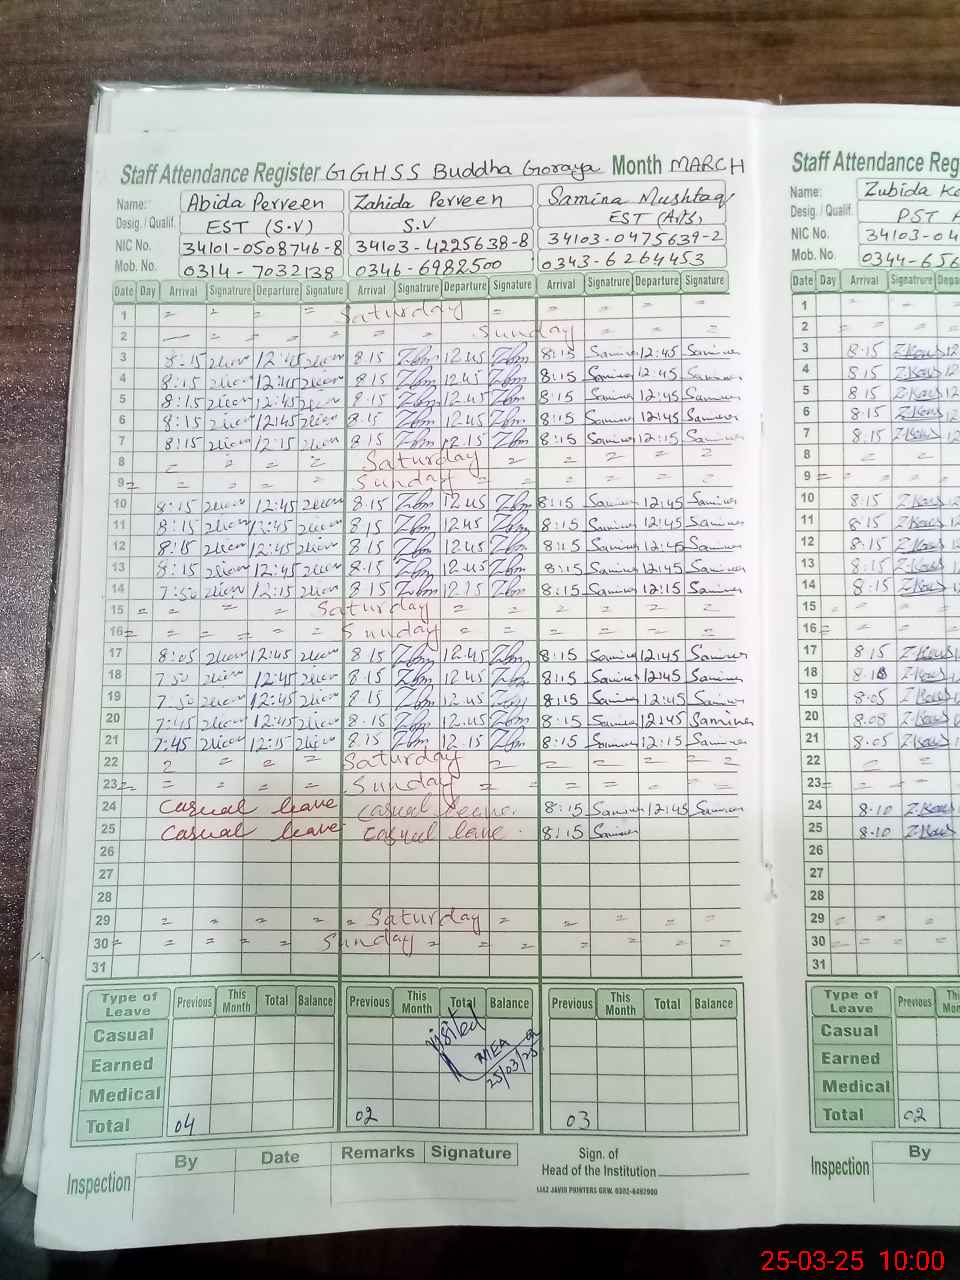 Staff Attendance Register GGHSS Buddha Goraya Month MARCH
Name: Abida Perveen Zahida Perveen Samina Mushtaq
Desig. / Qualif. EST (S.V) S.V EST (Arb)
NIC No. 34101-0508746-8 34103-4225638-8 34103-0475639-2
Mob. No. 0314-7032138 0346-6982500 0343-6264453
Date Day Arrival Signatrure Departure Signature Arrival Signatrure Departure Signature Arrival Signatrure Departure Signature
1 = = = = Saturday = = = = =
2 — = = = = = Sunday = = =
3 8:15 12:45 8.15 Zbm 12.45 Zbm 8:15 Samina 12:45 Samina
4 8:15 12:45 8.15 Zbm 12.45 Zbm 8:15 Samina 12:45 Samina
5 8:15 12:45 8.15 Zbm 12.45 Zbm 8:15 Samina 12:45 Samina
6 8:15 12:45 8.15 Zbm 12.45 Zbm 8:15 Samina 12:45 Samina
7 8:15 12:15 8.15 Zbm 12.15 Zbm 8:15 Samina 12:15 Samina
8 = = = = Saturday = = = = =
9 = = = = = Sunday = = = = =
10 8:15 12:45 8.15 Zbm 12.45 Zbm 8:15 Samina 12:45 Samina
11 8:15 12:45 8.15 Zbm 12.45 Zbm 8:15 Samina 12:45 Samina
12 8:15 12:45 8.15 Zbm 12.45 Zbm 8:15 Samina 12:45 Samina
13 8:15 12:45 8.15 Zbm 12.45 Zbm 8:15 Samina 12:45 Samina
14 7:50 12:15 8.15 Zbm 12.15 Zbm 8:15 Samina 12:15 Samina
15 = = = = Saturday = = = = = =
16 = = = = = Sunday = = = = = =
17 8:05 12:45 8.15 Zbm 12.45 Zbm 8:15 Samina 12:45 Samina
18 7.50 12:45 8.15 Zbm 12.45 Zbm 8:15 Samina 12:45 Samina
19 7.50 12:45 8.15 Zbm 12.45 Zbm 8:15 Samina 12:45 Samina
20 7:45 12:45 8.15 Zbm 12.45 Zbm 8:15 Samina 12:45 Samina
21 7:45 12:15 8.15 Zbm 12.15 Zbm 8:15 Samina 12:15 Samina
22 = = = = Saturday = = = = =
23 = = = = = Sunday = = = = = =
24 Casual leave casual leave. 8:15 Samina 12:45 Samina
25 Casual leave casual leave. 8:15 Samina
26
27
28
29 = = = = = Saturday = = = = =
30 = = = = = Sunday = = = = = =
31
Type of Leave Previous This Month Total Balance Previous This Month Total Balance Previous This Month Total Balance
Casual
Earned
Medical
Total 04 02 03
Visited
MEA
25/03/25
Inspection By Date Remarks Signature
Sign. of
Head of the Institution
IJAZ JAVID PRINTERS GRW. 0302-6492900
Staff Attendance Reg
Name: Zubida
Desig. / Qualif. PST
NIC No. 34103-04
Mob. No. 0344-656
Date Day Arrival Signatrure
1 = =
2 = = =
3 8:15 Z.Kous 12
4 8.15 Z.Kous 12
5 8.15 Z.Kous 12
6 8:15 Z.Kous 12
7 8.15 Z.Kous 12
8 = =
9 = = = =
10 8.15 Z.Kous 12
11 8.15 Z.Kous 12
12 8.15 Z.Kous 12
13 8:15 Z.Kous 12
14 8:15 Z.Kous
15 = = =
16 = = = =
17 8.15 Z.Kous
18 Z.Kous
19 8.05 Z.Kous
20 8.08 Z.Kous
21 8.05 Z.Kous
22 = =
23 = = =
24 8.10 Z.Kous
25 8.10 Z.Kous
26
27
28
29 = = =
30 = = =
31
Type of Leave Previous
Casual
Earned
Medical
Total 02
Inspection By
25-03-25 10:00